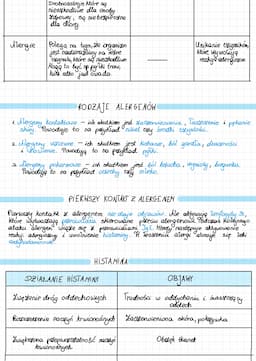 Drobnoustroje które są
nieszkodliwe dla osoby
zdrowej, są niebezpieczne
dla chorej
Alergie
Polega na tym, że organizm
jest nadwrażliwy na różne
czynniki, które są nieszkodliwe.
Mogą to być pyłki traw,
kurz albo jad owada.
Unikanie czynników,
które wywołują
reakcje alergiczne
RODZAJE ALERGENÓW
1. Alergeny kontaktowe – ich skutkiem jest zaczerwienienie, łuszczenie i pękanie
skóry. Powoduje to na przykład nikel czy środki czystości.
2. Alergeny wziewne – ich skutkiem jest katar, ból gardła, duszności
i łzawienie. Powodują to na przykład pyłki.
3. Alergeny pokarmowe – ich skutkiem jest ból brzucha, wymioty, biegunka.
Powodują to na przykład orzechy czy mleko.
PIERWSZY KONTAKT Z ALERGENEM
Pierwszy kontakt z alergenem nie daje objawów. Ale aktywuje limfocyty B,
które wytwarzają przeciwciała skierowane przeciw alergenowi. Podczas kolejnego
ataku alergen wiąże się z przeciwciałami IgE. Wtedy następuje aktywowanie
reakcji alergicznej i uwolnienie histaminy. W leczeniu alergii stosuje się leki
antyhistaminowe.
HISTAMINA
DZIAŁANIE HISTAMINY
OBJAWY
Zwężenie dróg oddechowych
Trudności w oddychaniu i świszczący
oddech
Rozszerzenie naczyń krwionośnych
Zaczerwieniona skóra, pokrzywka
Zwiększona przepuszczalność naczyń
krwionośnych
Obrzęk tkanek